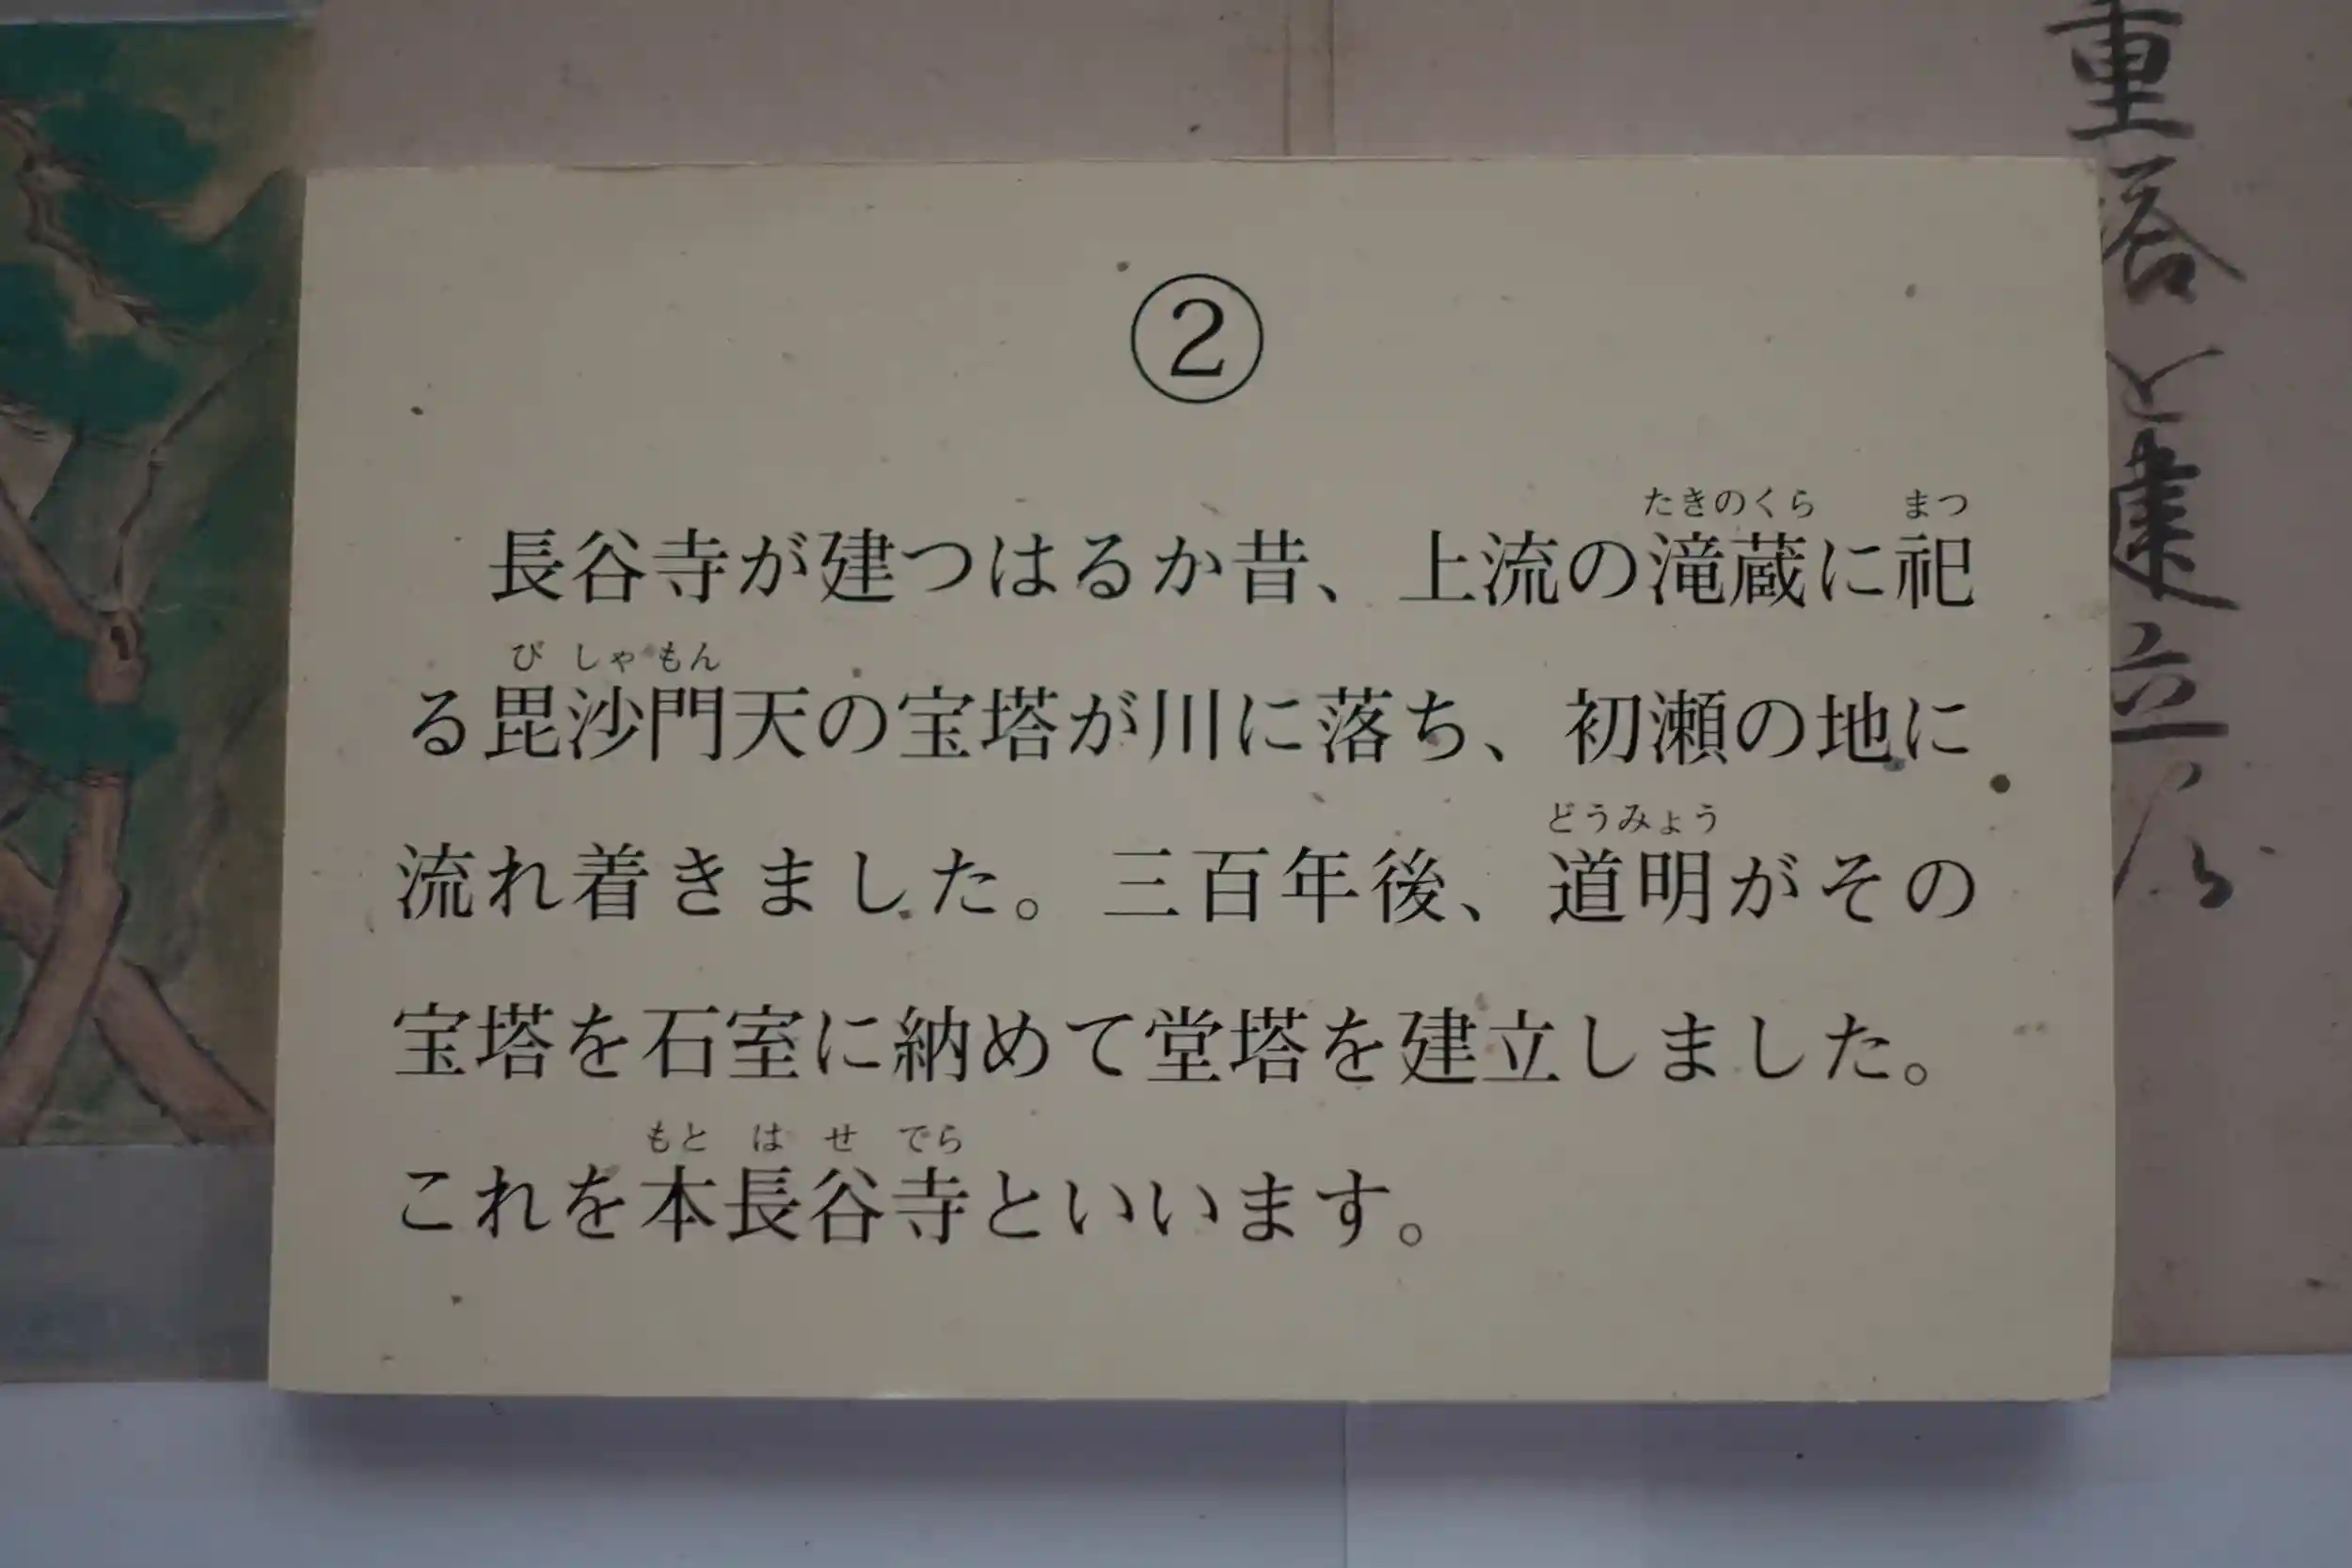 ②
長谷寺が建つはるか昔、上流の滝蔵に祀
たきのくら まつ
る毘沙門天の宝塔が川に落ち、初瀬の地に
び しゃ もん
流れ着きました。三百年後、道明がその
どうみょう
宝塔を石室に納めて堂塔を建立しました。
これを本長谷寺といいます。
もと は せ でら
重塔を建立